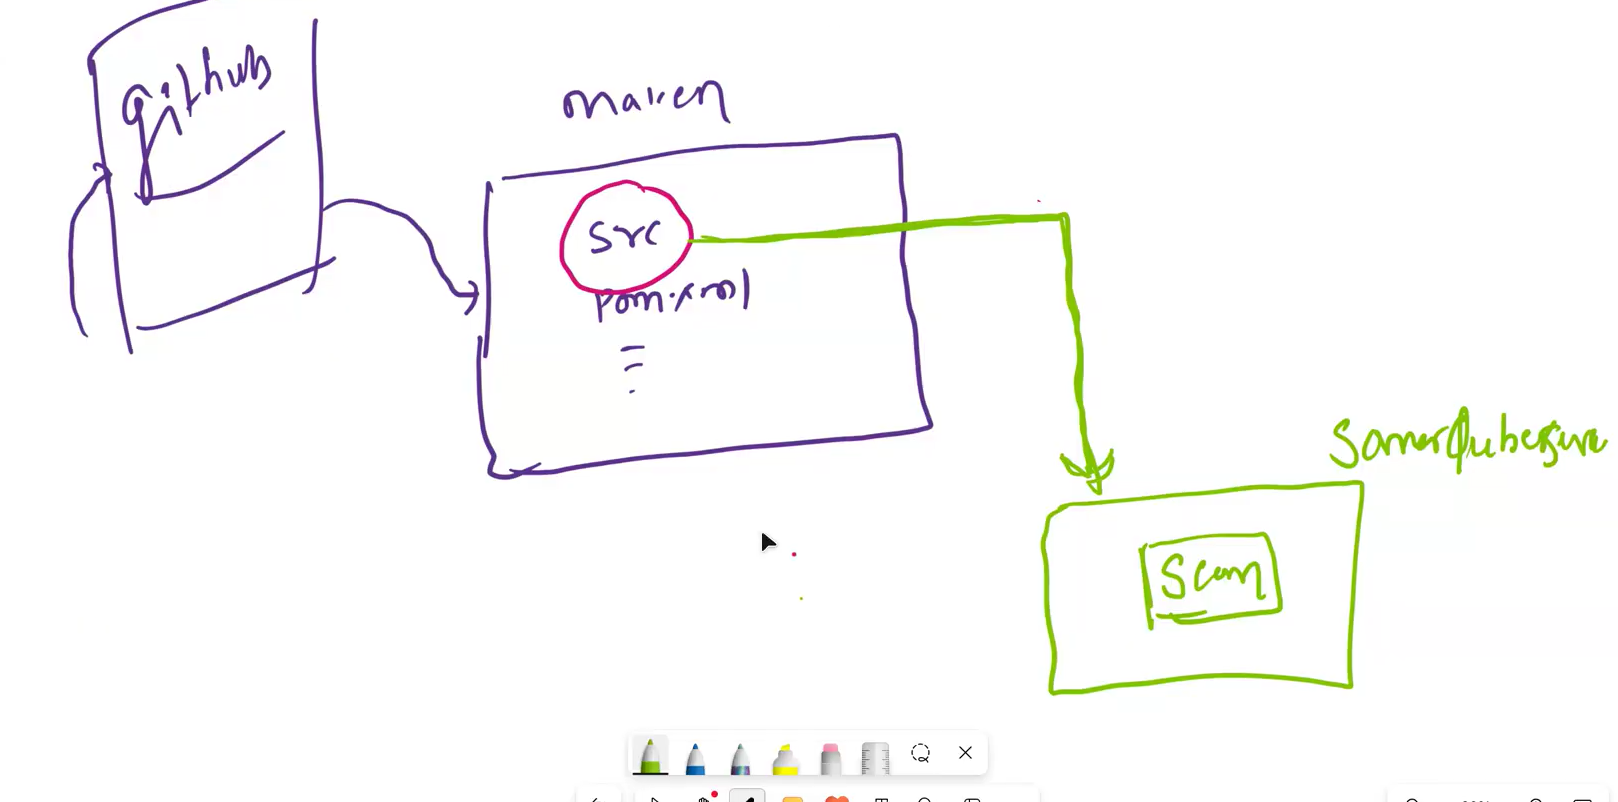 github
maven
src
pom.xml
SonarQubeserve
Scan